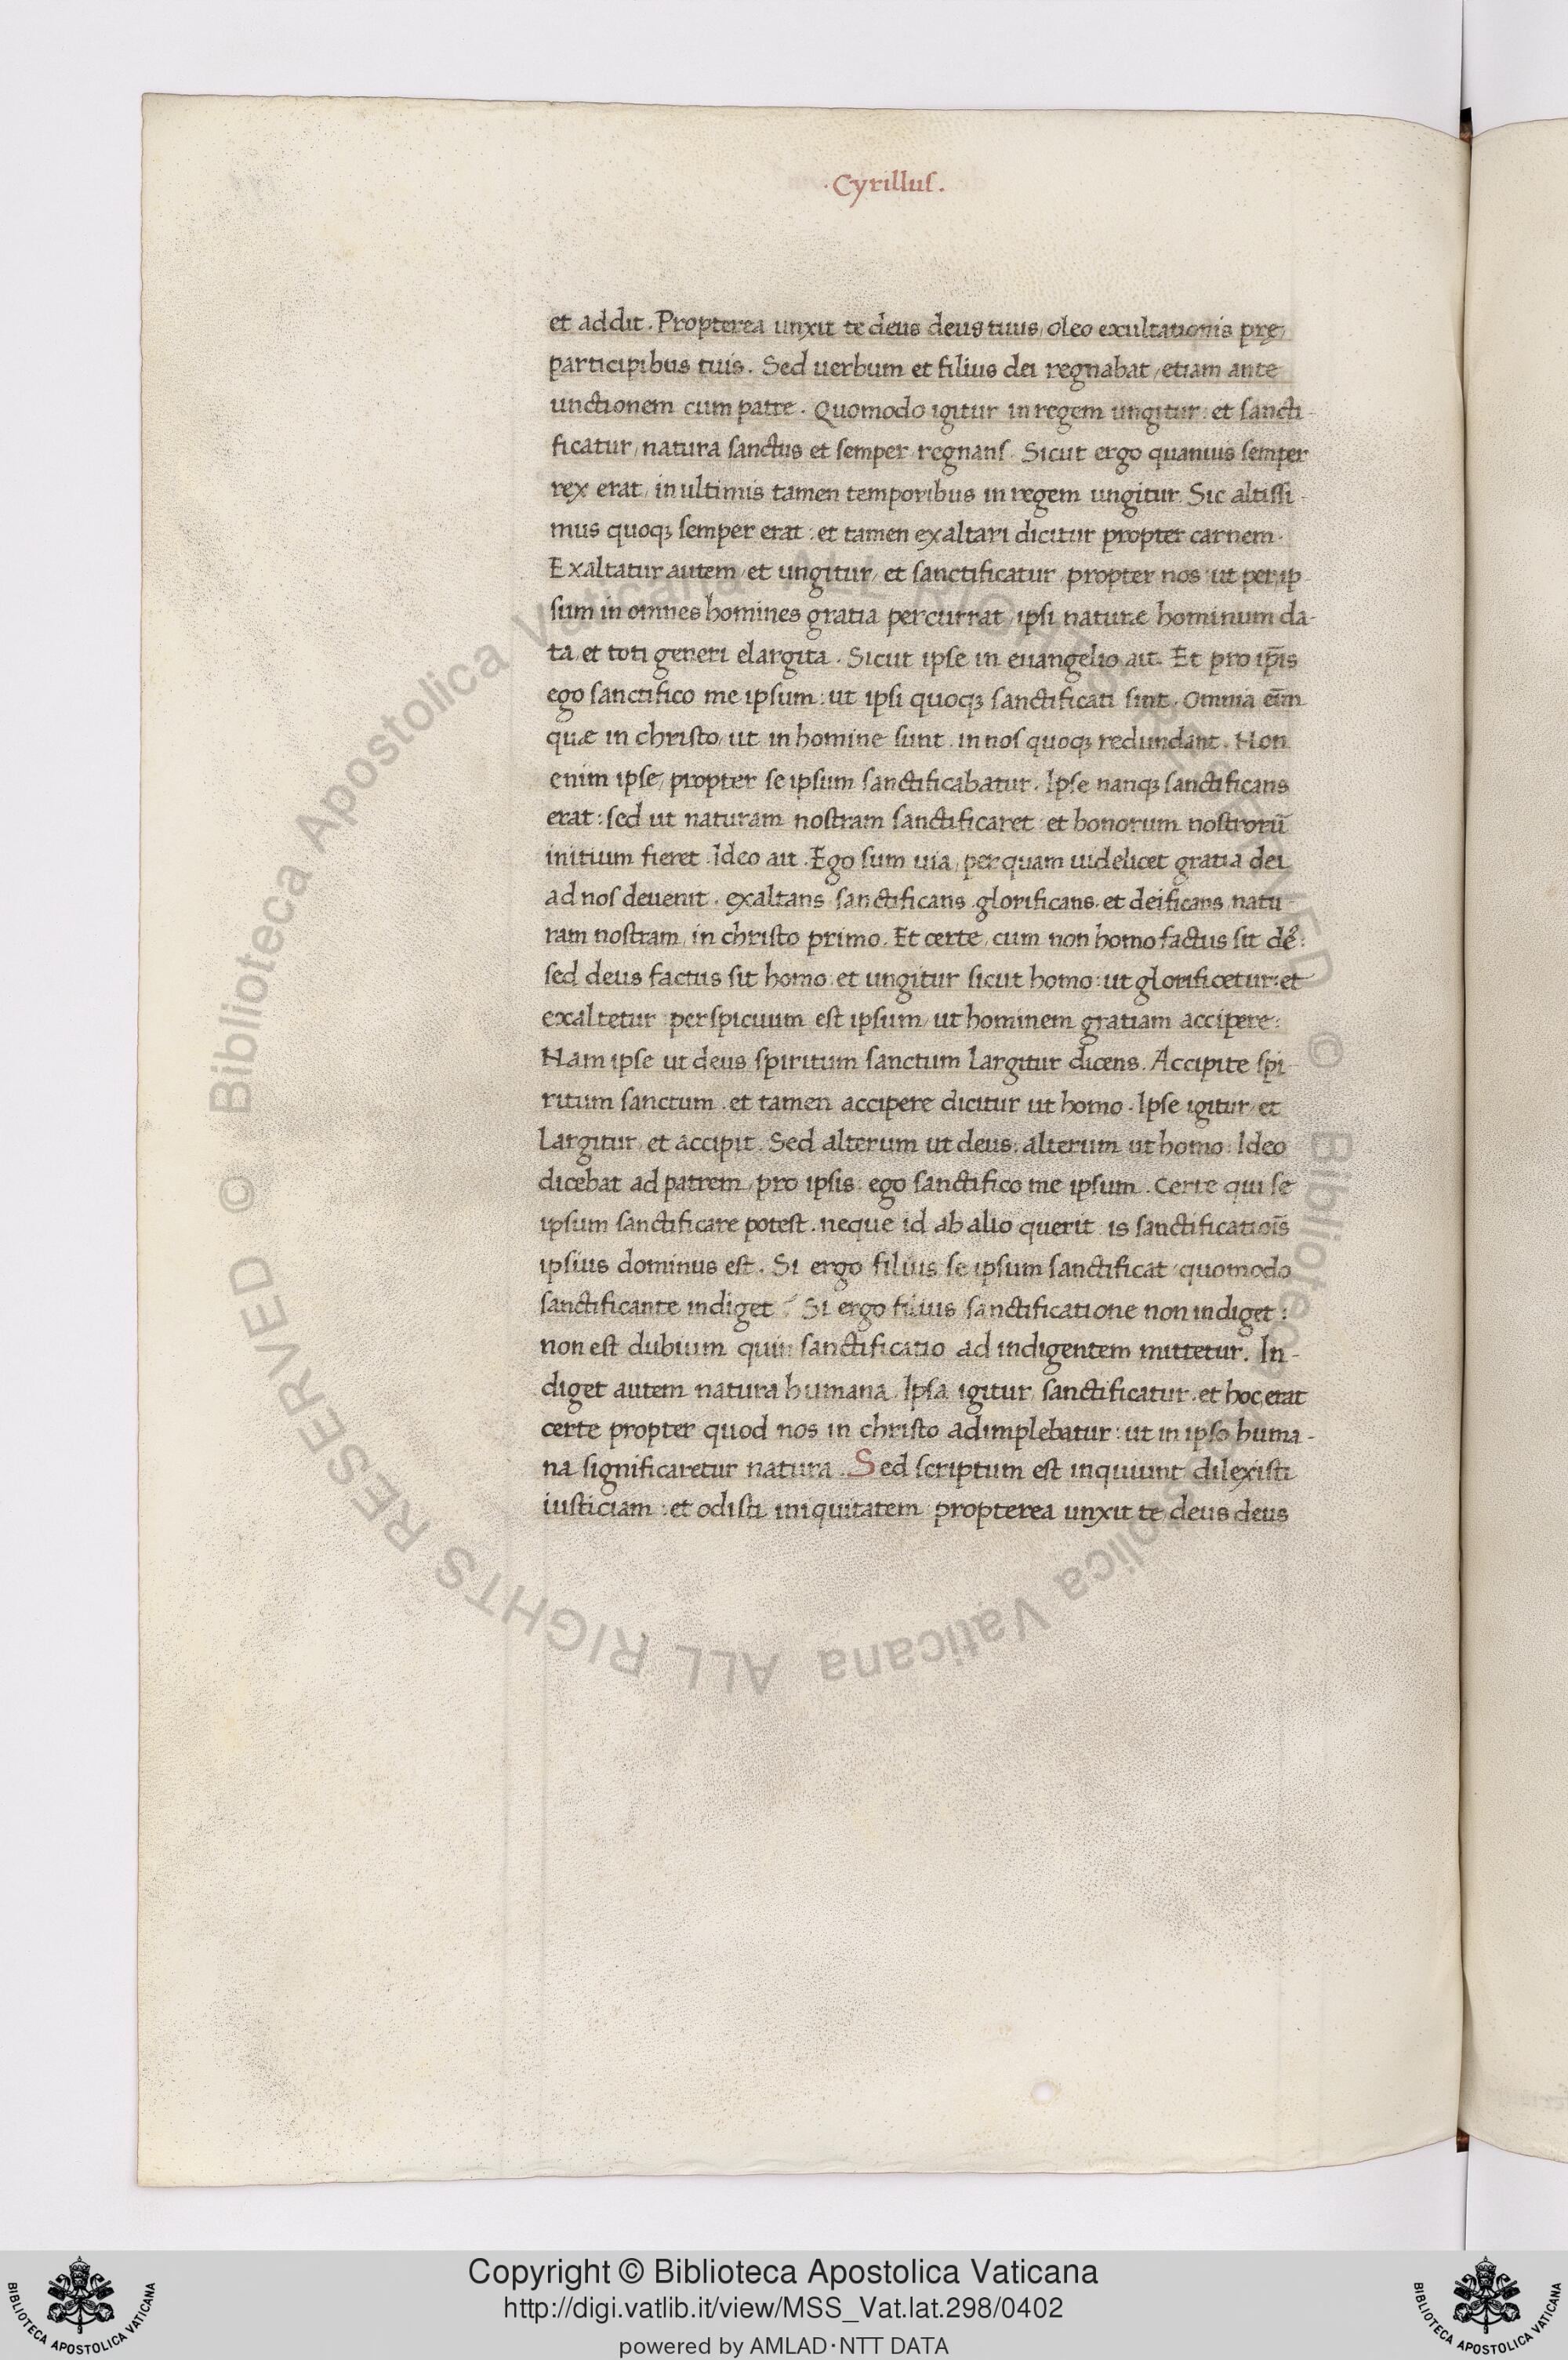 ·Cyrillus.
et addit. Propterea unxit te deus deus tuus, oleo exultationis pre,
participibus tuis. Sed uerbum et filius dei regnabat, etiam ante
unctionem cum patre. Quomodo igitur in regem ungitur: et sancti-
ficatur, natura sanctus et semper regnans. Sicut ergo quamuis semper
rex erat, in ultimis tamen temporibus in regem ungitur. Sic altissi-
mus quoqꝫ semper erat: et tamen exaltari dicitur propter carnem.
Exaltatur autem, et ungitur, et sanctificatur, propter nos: ut per ip-
sum in omnes homines gratia percurrat, ipsi naturæ hominum da-
ta, et toti generi elargita. Sicut ipse in euangelio ait. Et pro ip̄is
ego sanctifico me ipsum: ut ipsi quoqꝫ sanctificati sint. Omnia eīm
quæ in christo, ut in homine sunt, in nos quoqꝫ redundant. Non
enim ipse, propter se ipsum sanctificabatur. Ipse nanqꝫ sanctificans
erat: sed ut naturam nostram sanctificaret: et bonorum nostrorū
initium fieret. Ideo ait. Ego sum uia, per quam uidelicet gratia dei
ad nos deuenit. exaltans, sanctificans, glorificans, et deificans, natu-
ram nostram, in christo primo. Et certe, cum non homo factus sit dé:
sed deus factus sit homo: et ungitur sicut homo: ut glorificetur: et
exaltetur: perspicuum est ipsum, ut hominem gratiam accipere:
Nam ipse ut deus spiritum sanctum largitur dicens. Accipite spi-
ritum sanctum. et tamen accipere dicitur ut homo. Ipse igitur, et
largitur, et accipit. Sed alterum ut deus: alterum ut homo. Ideo
dicebat ad patrem, pro ipsis ego sanctifico me ipsum. Certe qui se
ipsum sanctificare potest. neque id ab alio querit is sanctificatiois̄
ipsius dominus est. Si ergo filius se ipsum sanctificat, quomodo
sanctificante indiget? Si ergo filius sanctificatione non indiget:
non est dubium quin sanctificatio ad indigentem mittetur. In-
diget autem natura humana. Ipsa igitur sanctificatur. et hoc erat
certe propter quod nos in christo adimplebatur: ut in ipso huma-
na significaretur natura. Sed scriptum est inquiunt dilexisti
iusticiam: et odisti iniquitatem propterea unxit te, deus deus
© Biblioteca Apostolica Vaticana ALL RIGHTS RESERVED © Biblioteca Apostolica Vaticana ALL RIGHTS RESERVED
Copyright © Biblioteca Apostolica Vaticana
http://digi.vatlib.it/view/MSS_Vat.lat.298/0402
powered by AMLAD·NTT DATA
BIBLIOTECA APOSTOLICA VATICANA
BIBLIOTECA APOSTOLICA VATICANA